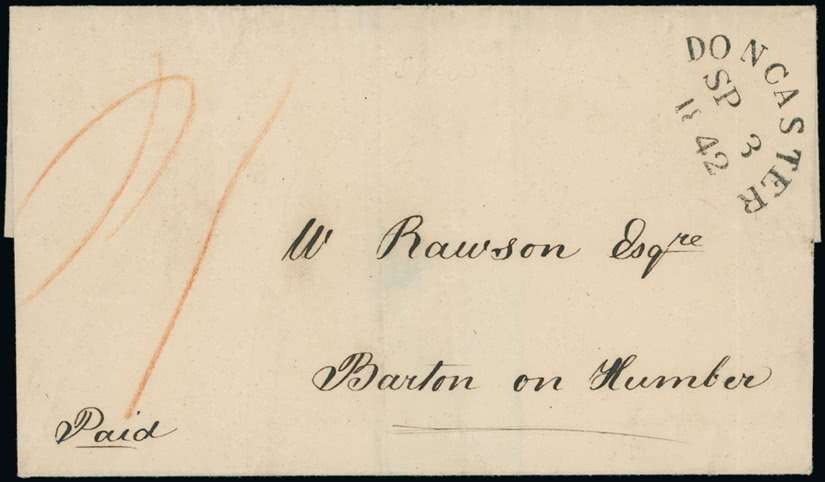 DONCASTER
SP 3
1842
W Rawson Esqre
Barton on Humber
Paid